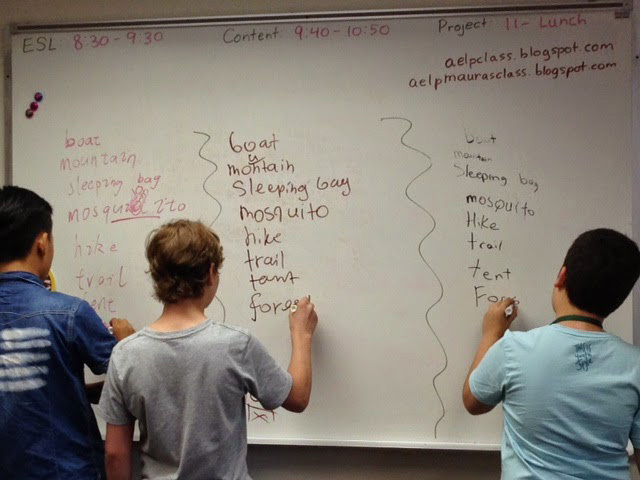 ESL: 8:30-9:30
Content: 9:40-10:50
Project: 11- Lunch
aelpclass.blogspot.com
aelpmaurasclass.blogspot.com
boat
mountain
sleeping bag
mosquito
hike
trail
tent
boat
montain
u
Sleeping bag
mosquito
hike
trail
tant
fores
boat
mountain
Sleeping bag
mosquito
Hike
trail
tent
Fore